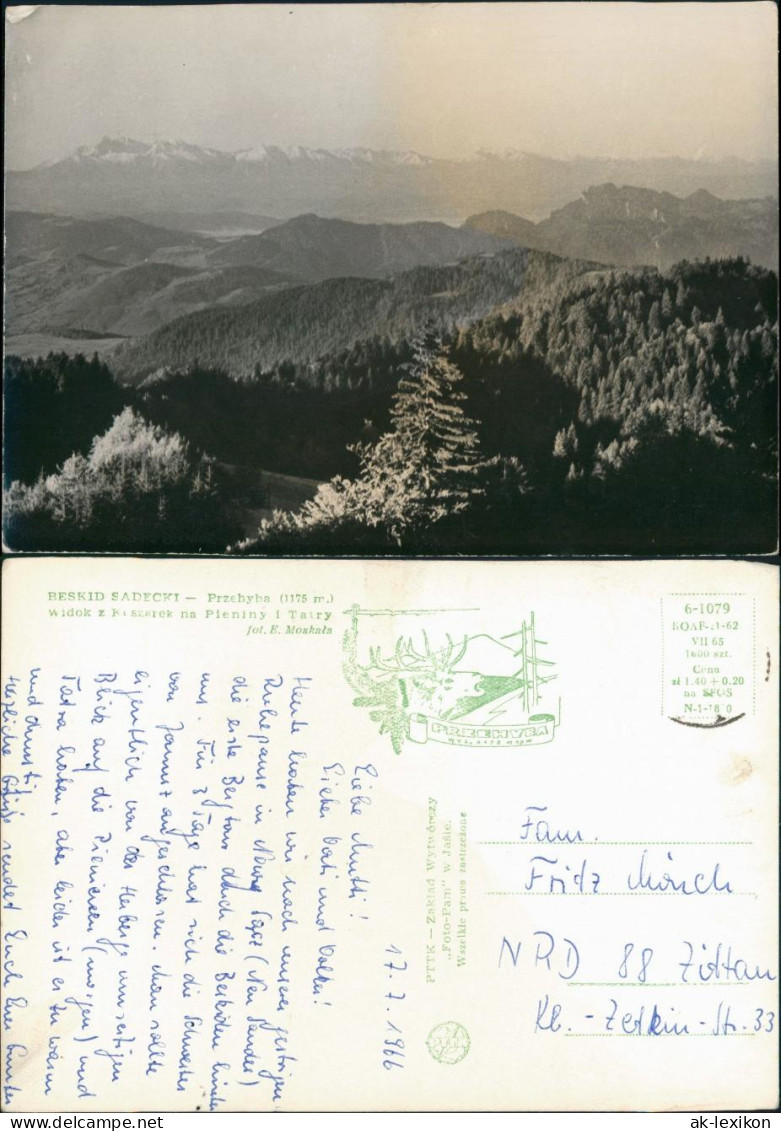 BESKID SĄDECKI — Przehyba (1175 m.)
Widok z Koszarek na Pieniny i Tatry
fot. E. Moskała
PRZEHYBA
6-1079
VII 65
1600 szt.
Cena
zł 1.40 + 0.20
na SFOS
PTTK — Zakład Wytwórczy
„Foto-Pam" w Jaśle.
Wszelkie prawa zastrzeżone
17. 7. 1966
Liebe Mutti!
Lieber Vati und Volker!
Heute haben wir nach unserer gestrigen
Ruhepause in Nowy Sącz (Neu Sandez)
die erste Bergtour durch die Beskiden hinter
uns. Für 3 Tage hat sich die Schwester
von Janusz angeschlossen. Man sollte
eigentlich von der Herberge
Blick auf die Pieninen (morgen) und
Tatra haben, aber leider ist es zu warm
und dunstig.
Herzliche Grüße sendet Euch Euer Gunter
Fam.
Fritz Mönch
NRD 88 Zittau
Kl.-Zetkin-Str. 33
ak-lexikon.com